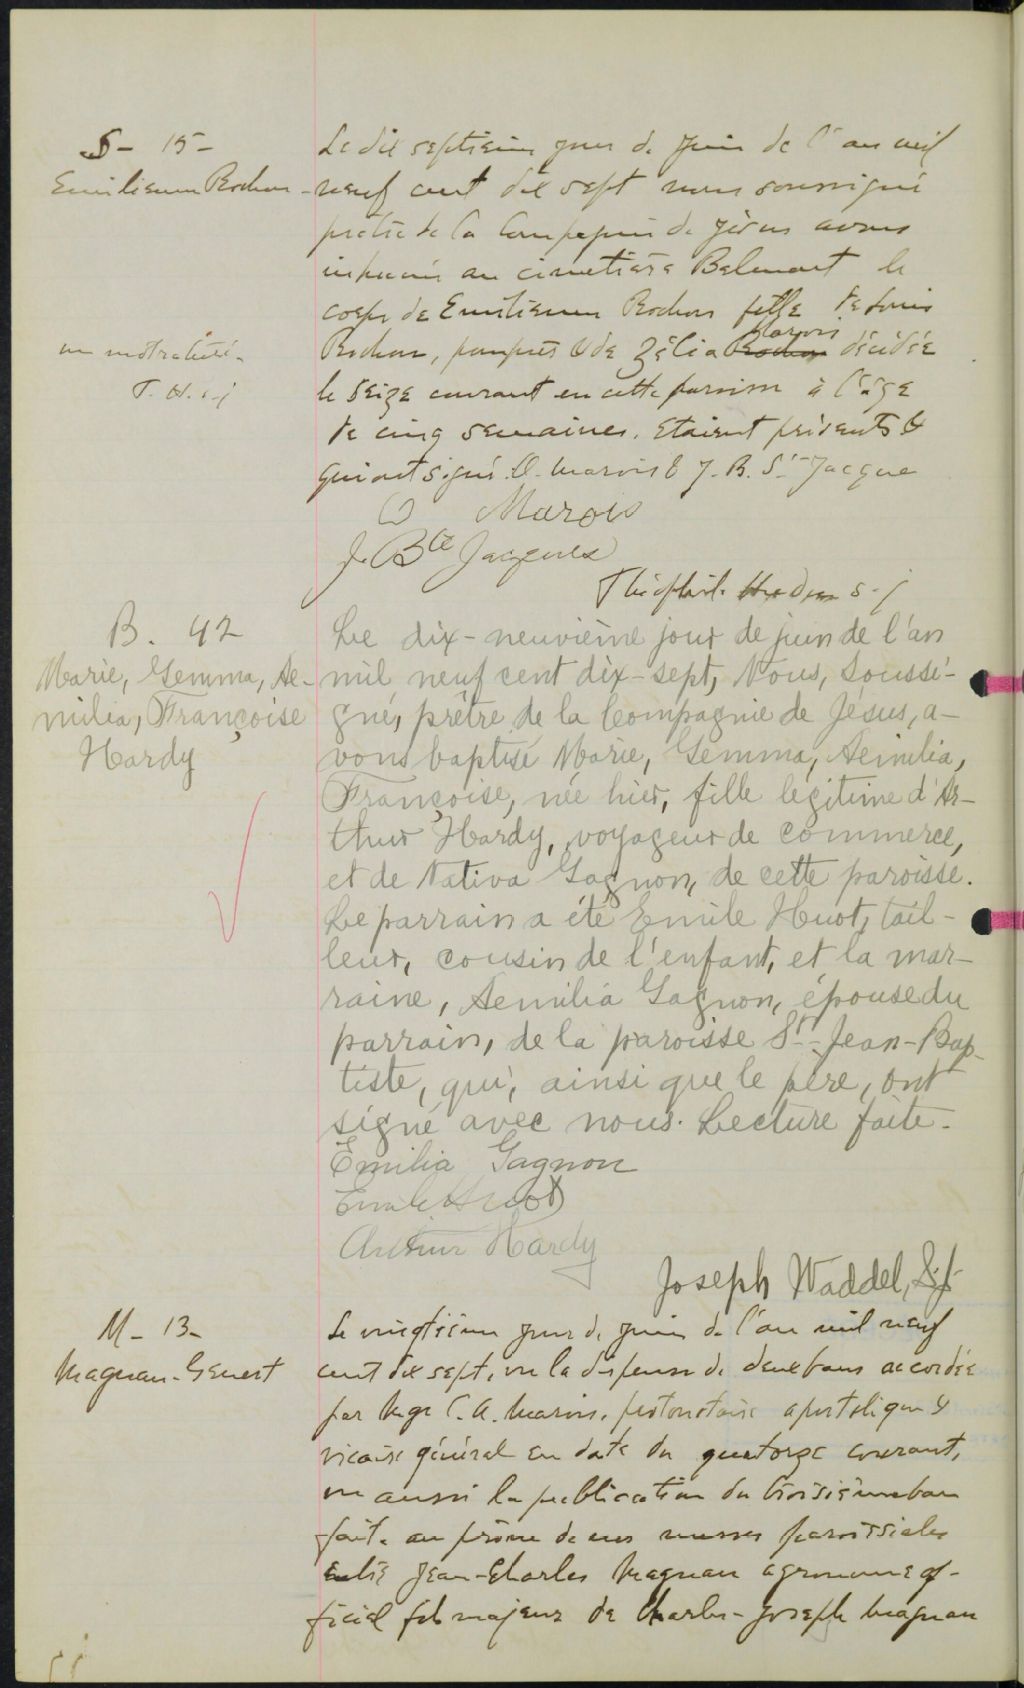 S - 15 -
Emilienne Rochon -
un mot raturé -
T. H. s.j
Le dix septième jour de juin de l'an mil
neuf cent dix sept nous soussigné
prêtre de la Compagnie de Jésus avons
inhumé au cimetière Belmont le
corps de Emilienne Rochon fille de Louis
Rochon, pompier & de Zélia Rochon Marois décédée
le seize courant en cette paroisse à l'âge
de cinq semaines. Etaient présents &
qui ont signé. O. Marois & J. B. St-Jacque
O Marois
J. Bte Jacques
Théophile Hudon s.j
B. 42
Marie, Gemma, Ae-
milia, Françoise
Hardy
Le dix-neuvième jour de juin de l'an
mil neuf cent dix-sept, Nous, soussi-
gné, prêtre de la Compagnie de Jésus, a-
vons baptisé Marie, Gemma, Aemilia,
Françoise, née hier, fille légitime d'Ar-
thur Hardy, voyageur de commerce,
et de Nativa Gagnon, de cette paroisse.
Le parrain a été Emile Huot, tail-
leur, cousin de l'enfant, et la mar-
raine, Aemilia Gagnon, épouse du
parrain, de la paroisse St-Jean-Bap-
tiste, qui, ainsi que le père, ont
signé avec nous. Lecture faite.
Emilia Gagnon
Emile Huot
Arthur Hardy
Joseph Waddel, S.j.
M - 13 -
Magnan - Genest
Le vingtième jour de juin de l'an mil neuf
cent dix sept, vu la dispense de deux bans accordée
par Mgr C. A. Marois, protonotaire apostolique &
vicaire général en date du quatorze courant,
vu aussi la publication du troisième ban
faite au prône de nos messes paroissiales
entre Jean-Charles Magnan agronome of-
ficiel fils majeur de Charles-Joseph Magnan